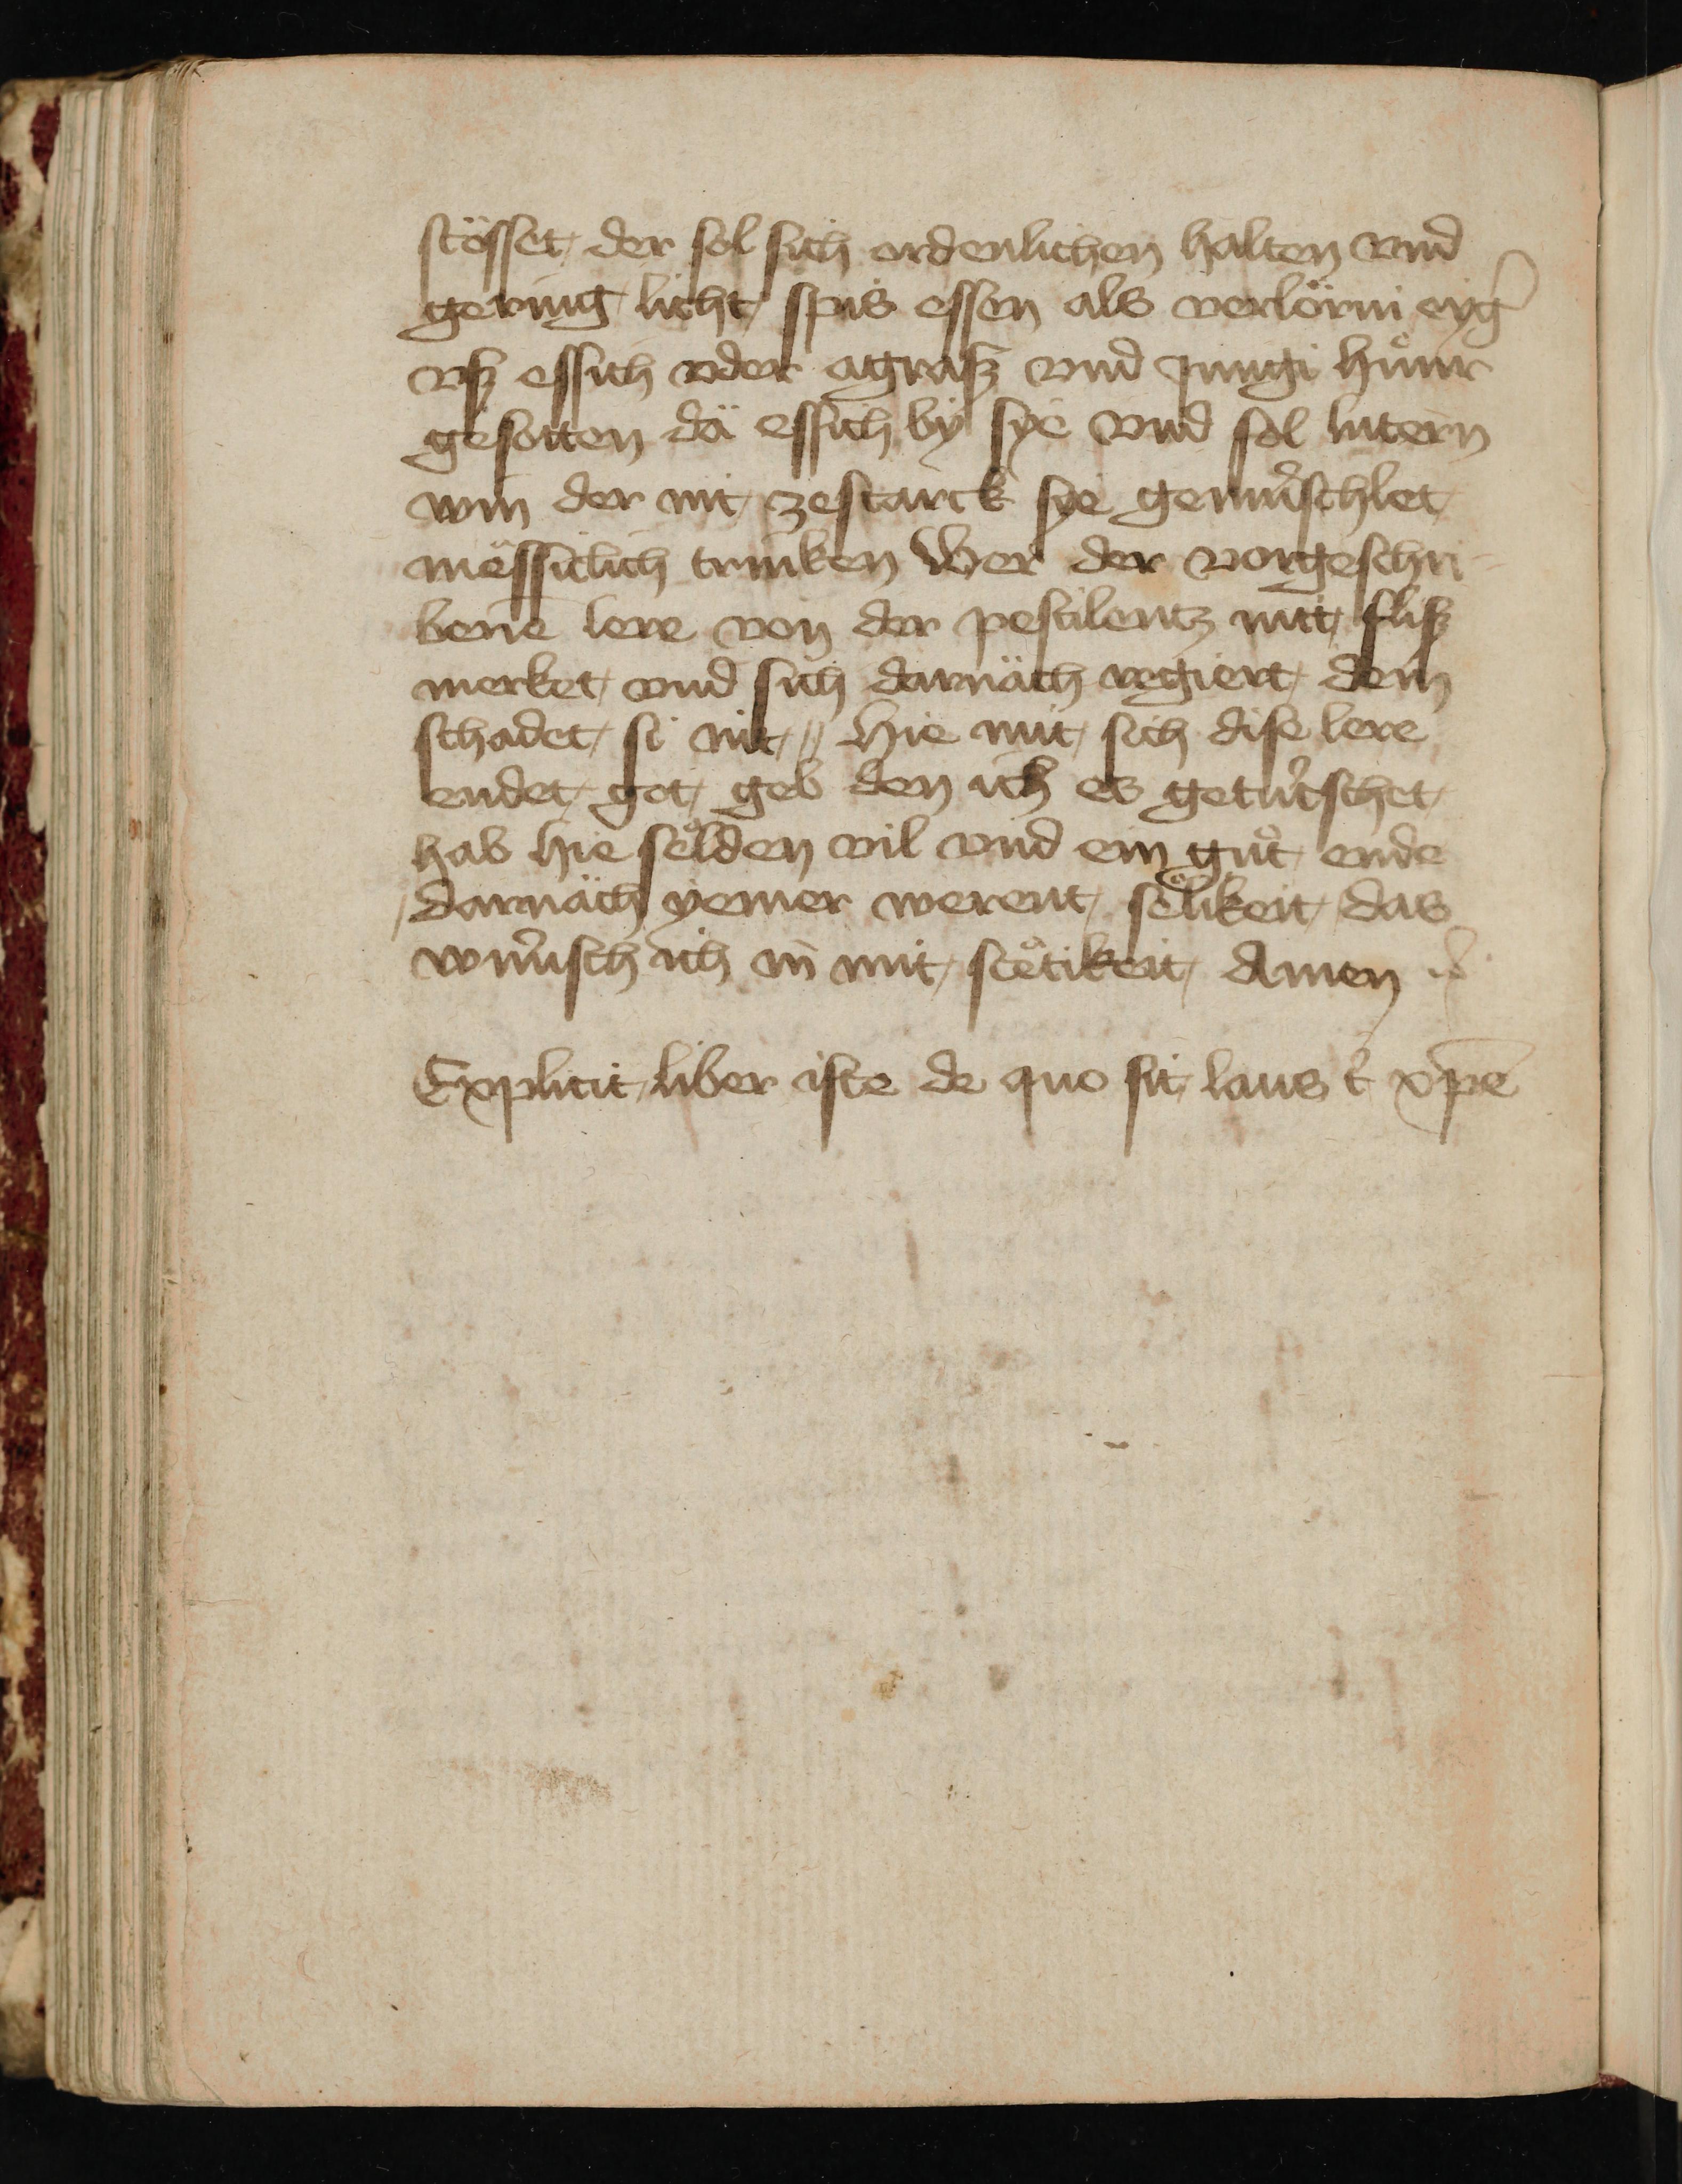 stösset der sol sich ordenlichen halten vnd
gering licht spis essen als verlörni eyg̕
vsz essich oder agrasz vnd jungi hu̍nr
gesotten dä essich bÿ sye vnd sol lutern
win der nit zestarck sye gemu̍schlet
mässiclich trinken Wer der vorgeschri-
bene lere von der pestilentz mit flisz
merket vnd sich darnäch regiert dem
schadet si nit // Hie mit sich dise lere
endet got geb den ich es getu̍tschet
hab hie sëlden vil vnd ein gůt ende
darnäch yemer werent sëlikeit das
wu̍nsch ich in mit stetikeit Amen
Explicit liber iste de quo sit laus t̕ xp̄e